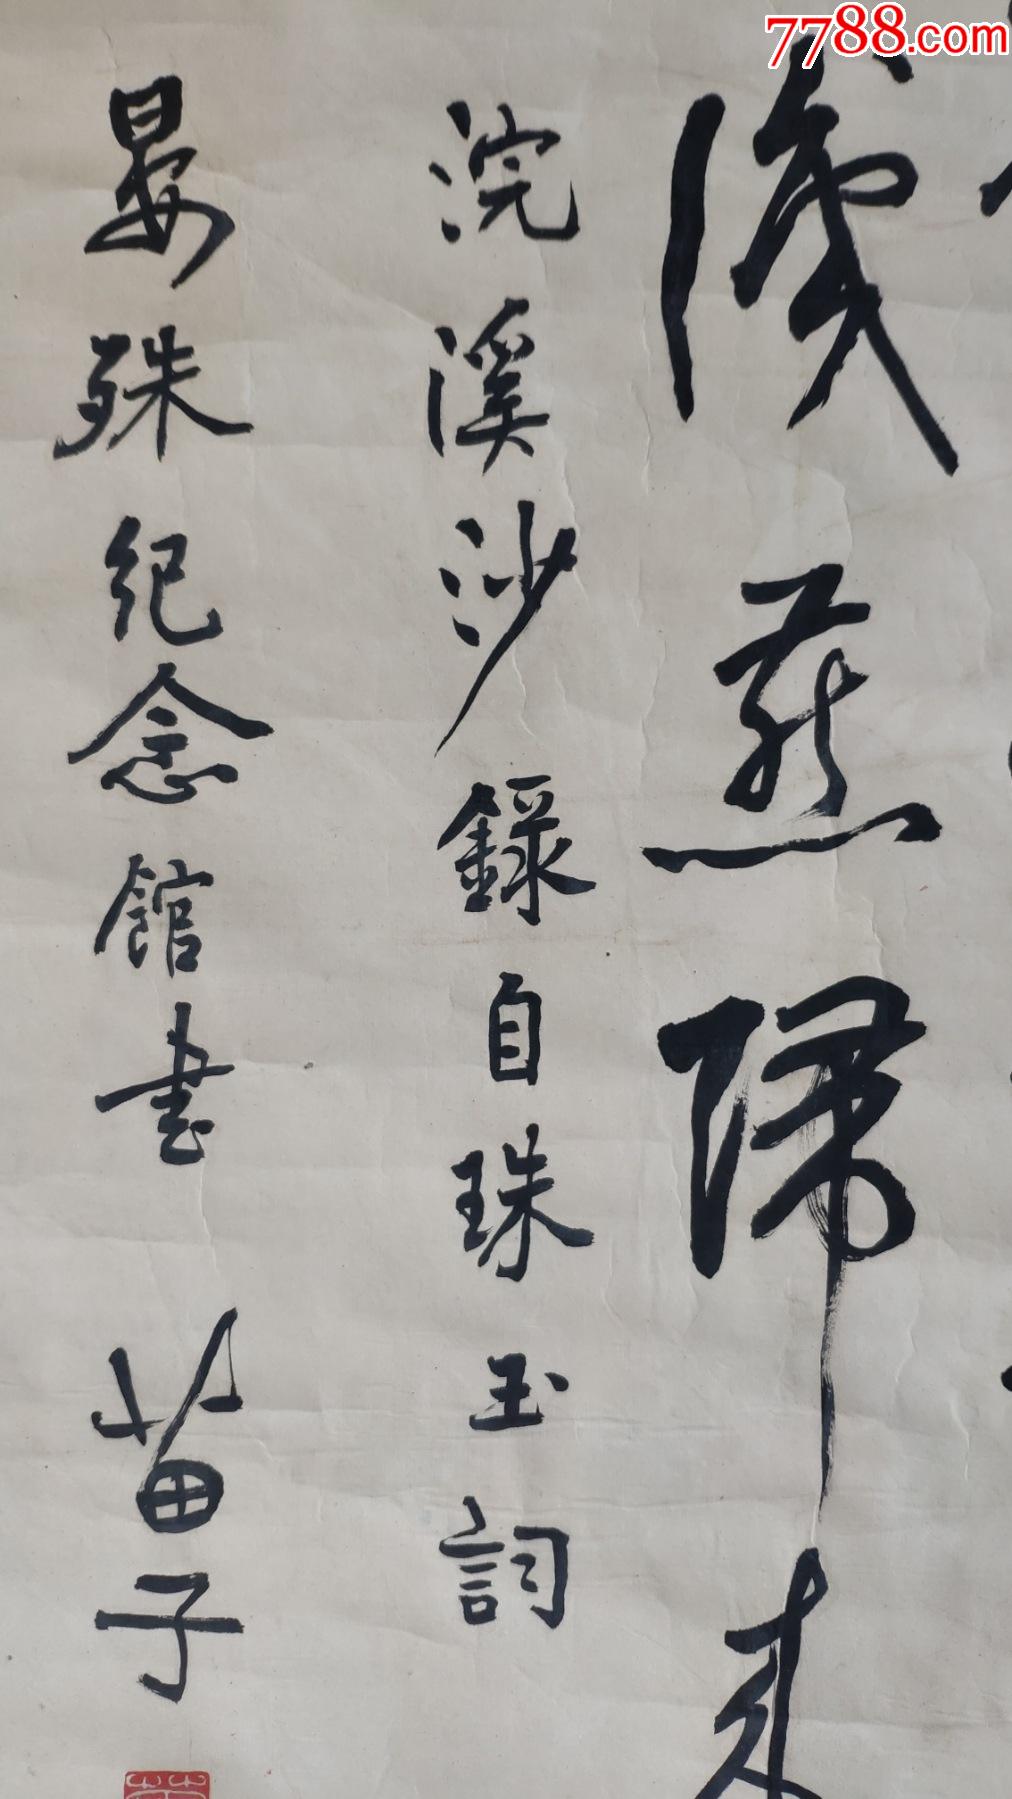 7788.com
識燕歸来
浣溪沙錄自珠玉詞
晏殊纪念館書 苗子